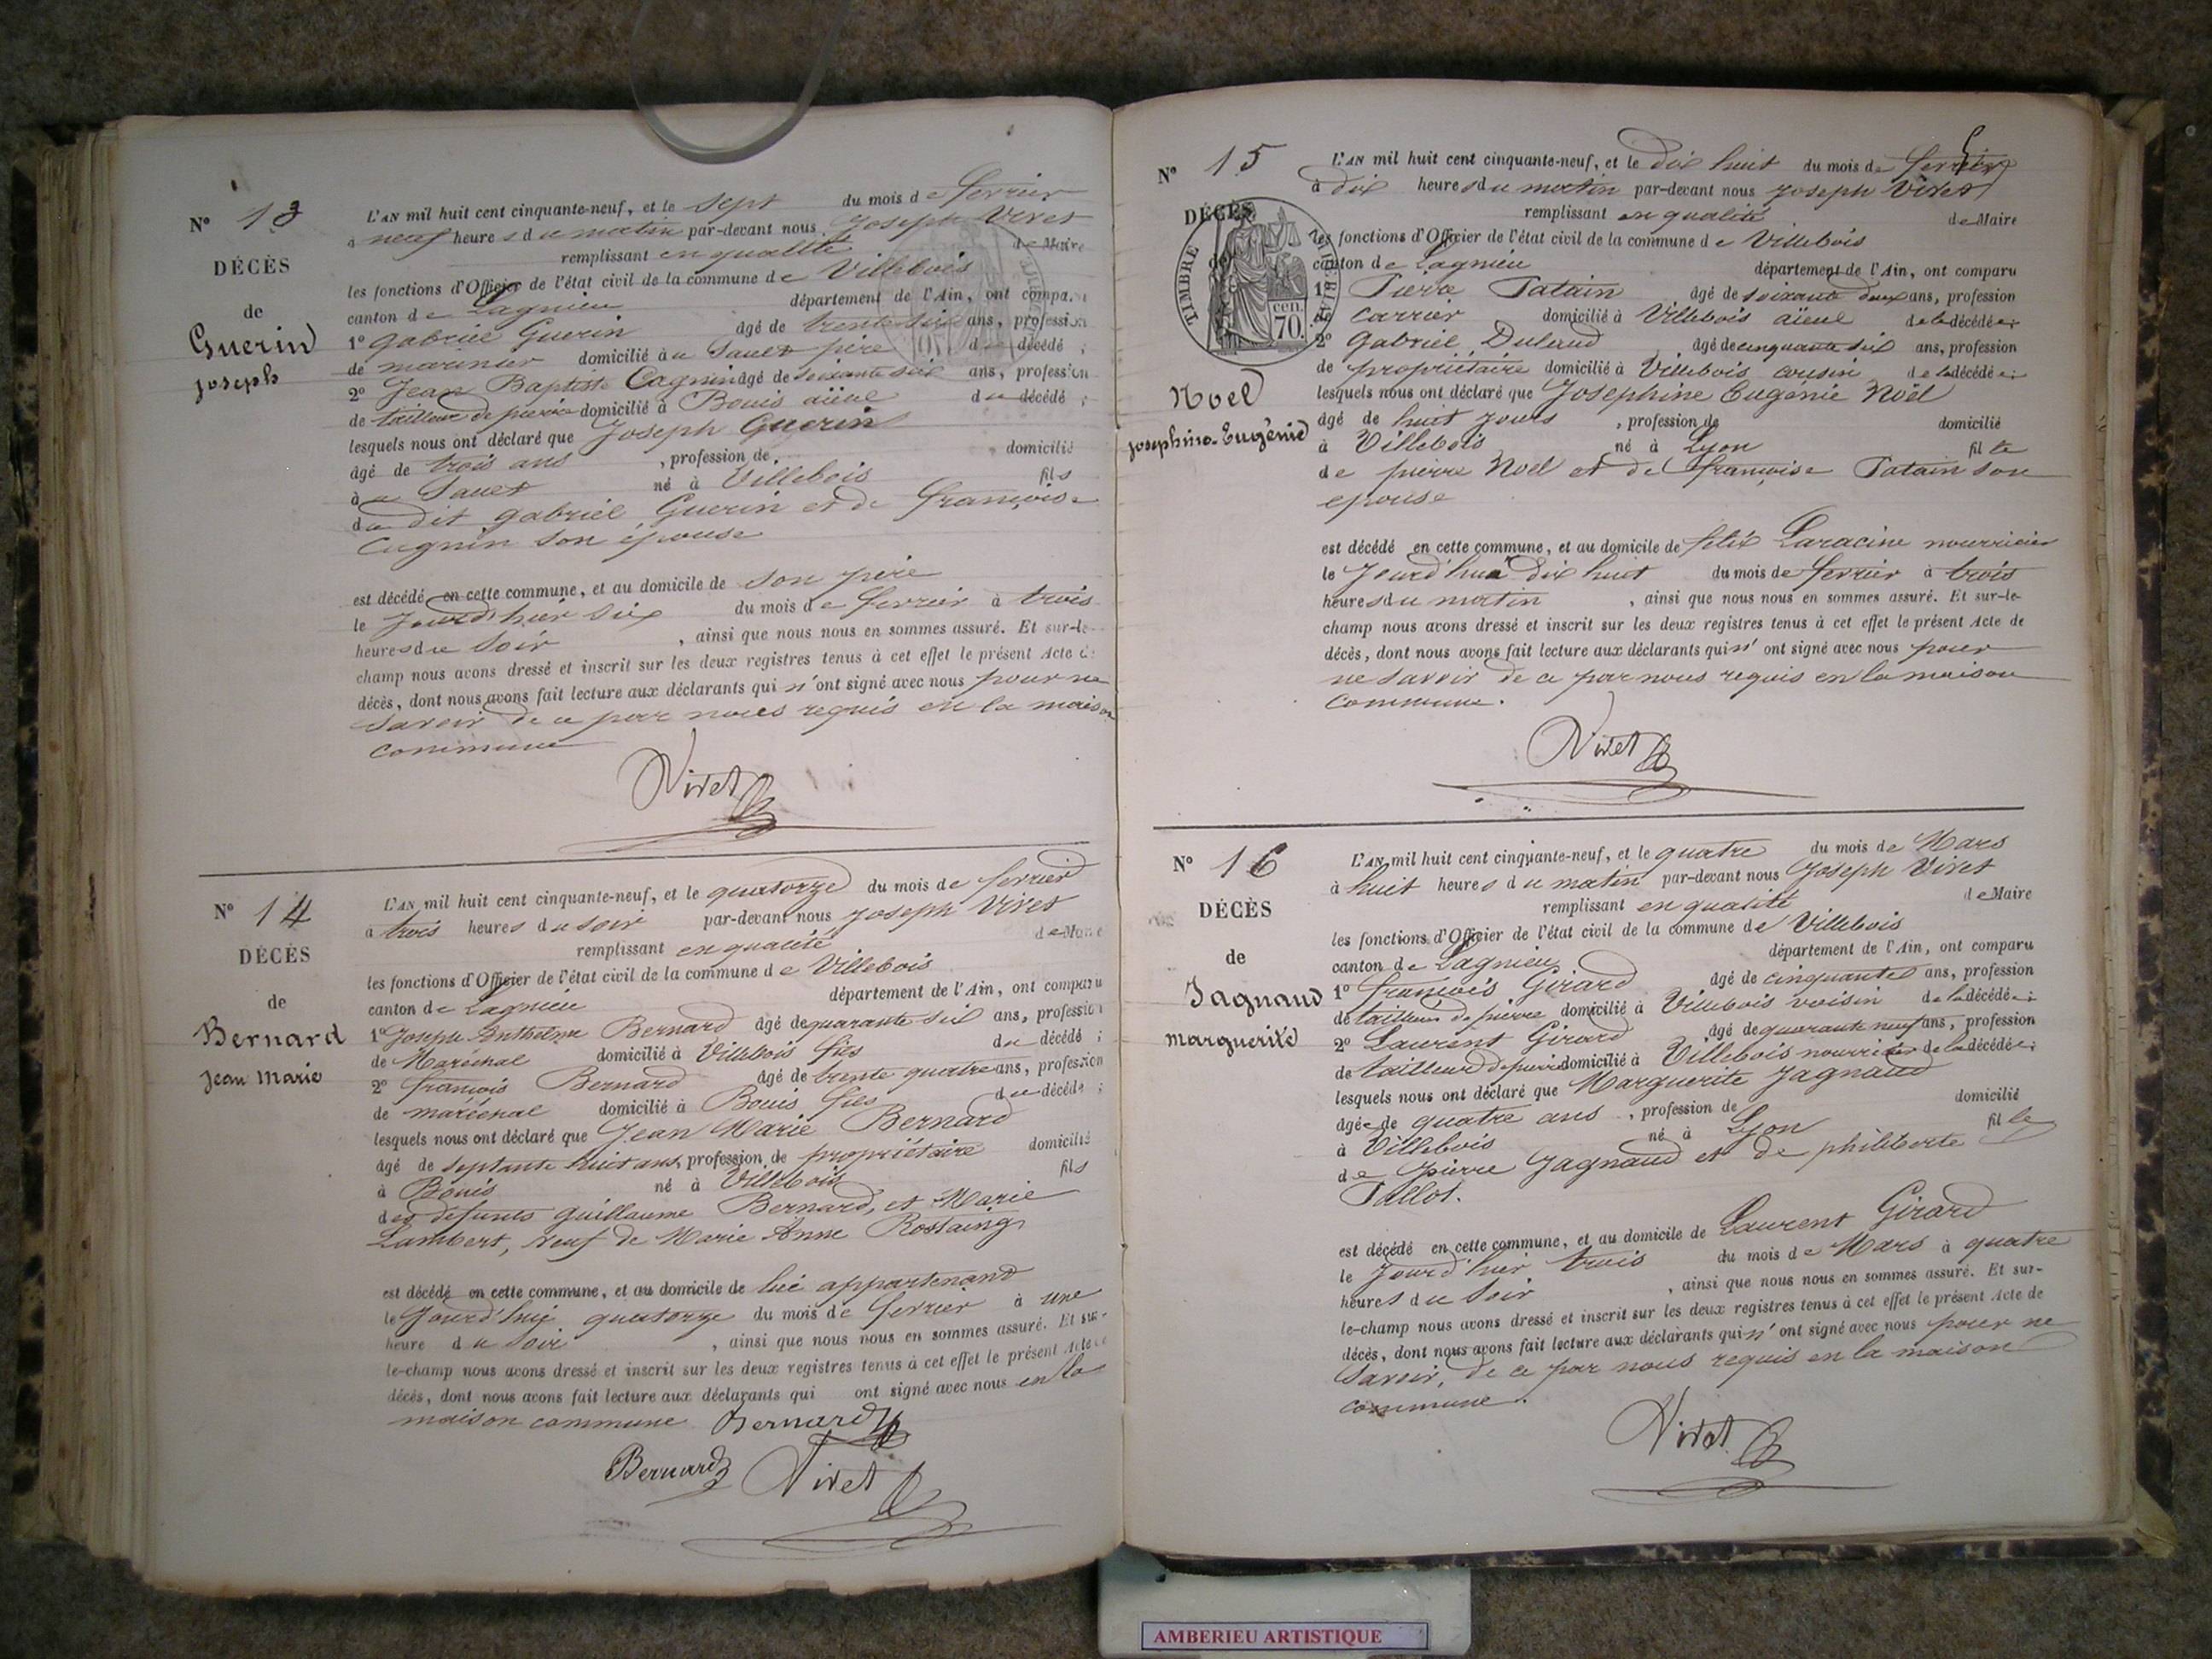 N° 13
DÉCÈS
de
Guerin
joseph
L'AN mil huit cent cinquante-neuf, et le sept du mois de fevrier
à neuf heures du matin par-devant nous Joseph Vivet
remplissant en qualité de Maire
les fonctions d'Officier de l'état civil de la commune de Villebois
canton de Lagnieu département de l'Ain, ont compa
1° gabriel Guerin âgé de trente six ans, profession
de marinier domicilié à Sault père du décédé ;
2° Jean Baptiste Cugnin âgé de soixante six ans, profession
de tailleur de pierre domicilié à Bouis aïeul du décédé ;
lesquels nous ont déclaré que Joseph Guerin
âgé de trois ans , profession de domicilié
à né à Villebois fils
du dit gabriel Guerin et de françoise
Cugnin son épouse
est décédé en cette commune, et au domicile de son père
le jourd'hier six du mois de fevrier à trois
heures du soir , ainsi que nous nous en sommes assuré. Et sur-le-
champ nous avons dressé et inscrit sur les deux registres tenus à cet effet le présent Acte de
décès, dont nous avons fait lecture aux déclarants qui n'ont signé avec nous pour ne
savoir de ce par nous requis en la maison
commune
Vivet
N° 14
DÉCÈS
de
Bernard
jean marie
L'AN mil huit cent cinquante-neuf, et le quatorze du mois de fevrier
à trois heures du soir par-devant nous Joseph Vivet
remplissant en qualité de Maire
les fonctions d'Officier de l'état civil de la commune de Villebois
canton de Lagnieu département de l'Ain, ont comparu
1° Joseph Anthelme Bernard âgé de quarante six ans, profession
de Maréchal domicilié à Villebois fils du décédé ;
2° françois Bernard âgé de trente quatre ans, profession
de maréchal domicilié à Bouis fils du décédé ;
lesquels nous ont déclaré que Jean Marie Bernard
âgé de septante huit ans, profession de propriétaire domicilié
à Bouis né à Villebois fils
des defunts guillaume Bernard, et Marie
Lambert, veuf de Marie Anne Rossaing
est décédé en cette commune, et au domicile de lui appartenant
le Jourd'hui quatorze du mois de fevrier à une
heure du soir , ainsi que nous nous en sommes assuré. Et sur-
le-champ nous avons dressé et inscrit sur les deux registres tenus à cet effet le présent Acte de
décès, dont nous avons fait lecture aux déclarants qui ont signé avec nous en la
maison commune Bernard
Bernard Vivet
N° 15
DÉCÈS
de
TIMBRE IMPÉRIAL
70 cen.
Noel
josephine-Eugénie
L'AN mil huit cent cinquante-neuf, et le dix huit du mois de fevrier
à dix heures du matin par-devant nous joseph Vivet
remplissant en qualité de Maire
les fonctions d'Officier de l'état civil de la commune de Villebois
canton de Lagnieu département de l'Ain, ont comparu
1° Pierre Tatain âgé de soixante deux ans, profession
de carrier domicilié à Villebois aïeul de la décédée;
2° Gabriel Dulaud âgé de cinquante six ans, profession
de propriétaire domicilié à Villebois cousin de la décédée;
lesquels nous ont déclaré que Josephine Eugénie Noël
âgé de huit jours , profession de domicilié
à Villebois né à Lyon fille
de pierre Noël et de françoise Tatain son
epouse
est décédé en cette commune, et au domicile de felix Laracine nourricier
le Jourd'hui dix huit du mois de fevrier à trois
heures du matin , ainsi que nous nous en sommes assuré. Et sur-le-
champ nous avons dressé et inscrit sur les deux registres tenus à cet effet le présent Acte de
décès, dont nous avons fait lecture aux déclarants qui n'ont signé avec nous pour
ne savoir de ce par nous requis en la maison
commune.
Vivet
N° 16
DÉCÈS
de
Jagnaud
marguerite
L'AN mil huit cent cinquante-neuf, et le quatre du mois de Mars
à huit heures du matin par-devant nous Joseph Vivet
remplissant en qualité de Maire
les fonctions d'Officier de l'état civil de la commune de Villebois
canton de Lagnieu département de l'Ain, ont comparu
1° françois Girard âgé de cinquante ans, profession
de tailleur de pierre domicilié à Villebois voisin de la décédée;
2° Laurent Girard âgé de quarante neuf ans, profession
de tailleur de pierre domicilié à Villebois nourricier de la décédée;
lesquels nous ont déclaré que Marguerite Jagnaud
âgée de quatre ans , profession de domicilié
à Villebois né à Lyon fille
de pierre Jagnaud et de philiberte
Tallot.
est décédé en cette commune, et au domicile de Laurent Girard
le Jourd'hier trois du mois de Mars à quatre
heures du soir , ainsi que nous nous en sommes assuré. Et sur-
le-champ nous avons dressé et inscrit sur les deux registres tenus à cet effet le présent Acte de
décès, dont nous avons fait lecture aux déclarants qui n'ont signé avec nous pour ne
savoir, de ce par nous requis en la maison
commune.
Vivet
AMBERIEU ARTISTIQUE